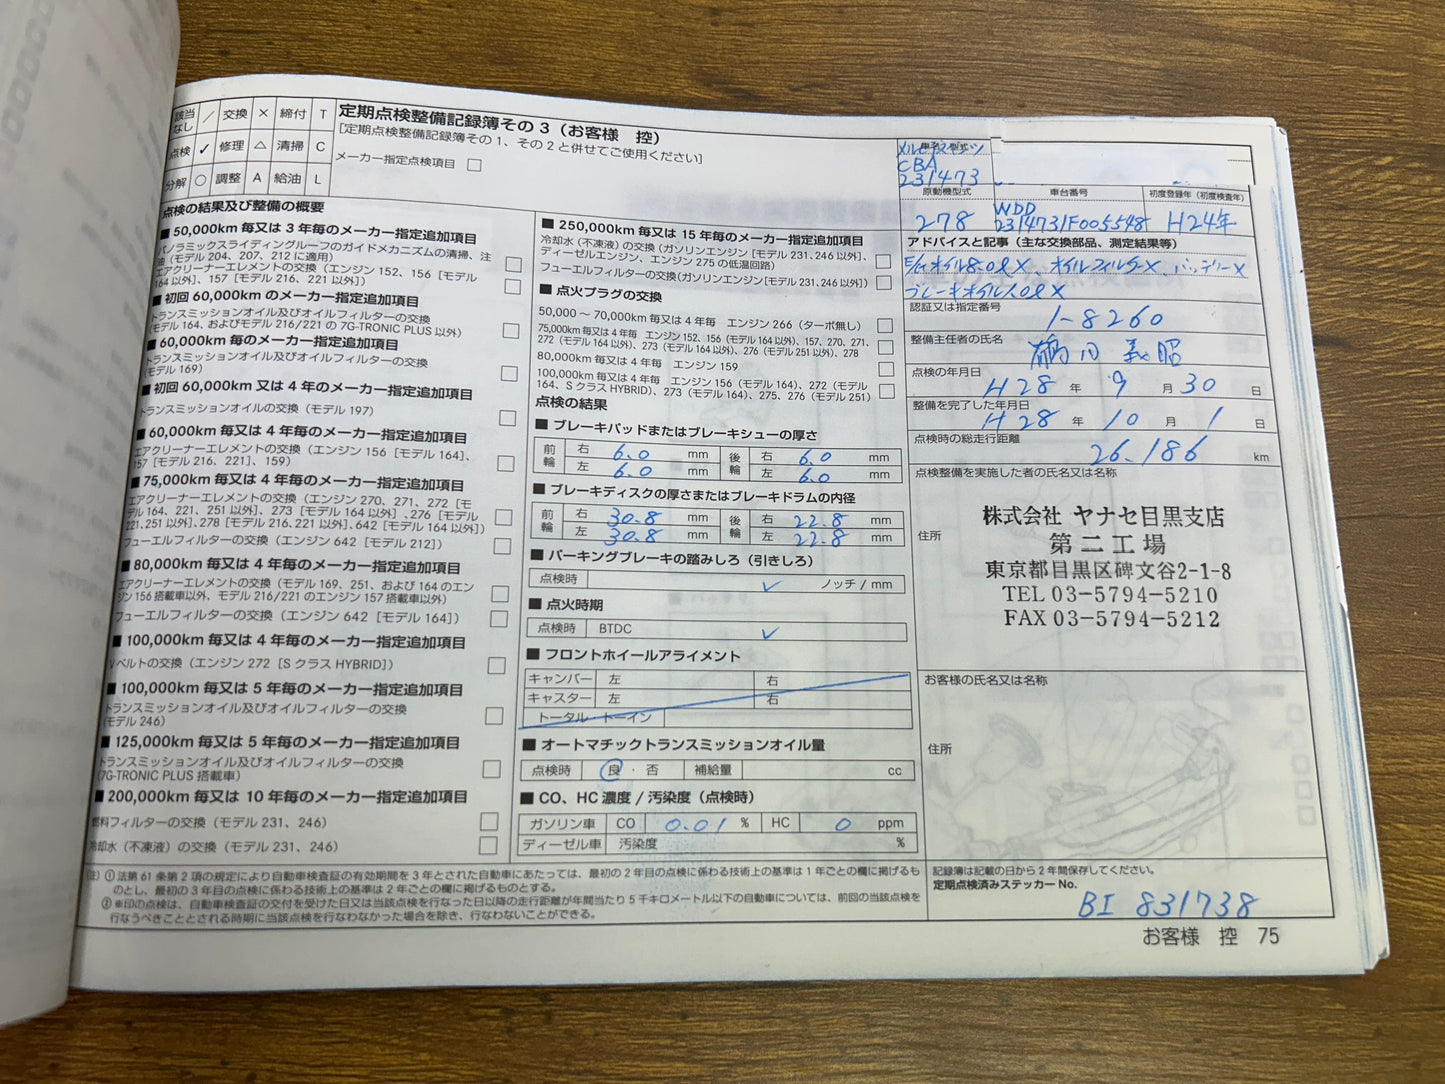 該当なし ／ 交換 × 締付 T
点検 ✓ 修理 △ 清掃 C
分解 ○ 調整 A 給油 L
定期点検整備記録簿その３（お客様　控）
［定期点検整備記録簿その１、その２と併せてご使用ください］
メーカー指定点検項目 □
点検の結果及び整備の概要
■ 50,000km 毎又は 3 年毎のメーカー指定追加項目
パノラミックスライディングルーフのガイドメカニズムの清掃、注
油（モデル 204、207、212 に適用）
エアクリーナーエレメントの交換（エンジン 152、156［モデル
164 以外］、157［モデル 216、221 以外］）
■ 初回 60,000km のメーカー指定追加項目
トランスミッションオイル及びオイルフィルターの交換
（モデル 164、およびモデル 216/221 の 7G-TRONIC PLUS 以外）
■ 60,000km 毎のメーカー指定追加項目
トランスミッションオイル及びオイルフィルターの交換
（モデル 169）
■ 初回 60,000km 又は 4 年のメーカー指定追加項目
トランスミッションオイルの交換（モデル 197）
■ 60,000km 毎又は 4 年毎のメーカー指定追加項目
エアクリーナーエレメントの交換（エンジン 156［モデル 164］、
157［モデル 216、221］、159）
■ 75,000km 毎又は 4 年毎のメーカー指定追加項目
エアクリーナーエレメントの交換（エンジン 270、271、272［モ
デル 164、221、251 以外］、273［モデル 164 以外］、276［モデル
221、251 以外］、278［モデル 216、221 以外］、642［モデル 164 以外］）
フューエルフィルターの交換（エンジン 642［モデル 212］）
■ 80,000km 毎又は 4 年毎のメーカー指定追加項目
エアクリーナーエレメントの交換（モデル 169、251、および 164 のエン
ジン 156 搭載車以外、モデル 216/221 のエンジン 157 搭載車以外）
フューエルフィルターの交換（エンジン 642［モデル 164］）
■ 100,000km 毎又は 4 年毎のメーカー指定追加項目
Vベルトの交換（エンジン 272［S クラス HYBRID］）
■ 100,000km 毎又は 5 年毎のメーカー指定追加項目
トランスミッションオイル及びオイルフィルターの交換
（モデル 246）
■ 125,000km 毎又は 5 年毎のメーカー指定追加項目
トランスミッションオイル及びオイルフィルターの交換
（7G-TRONIC PLUS 搭載車）
■ 200,000km 毎又は 10 年毎のメーカー指定追加項目
燃料フィルターの交換（モデル 231、246）
冷却水（不凍液）の交換（モデル 231、246）
■ 250,000km 毎又は 15 年毎のメーカー指定追加項目
冷却水（不凍液）の交換（ガソリンエンジン［モデル 231、246 以外］、
ディーゼルエンジン、エンジン 275 の低温回路）
フューエルフィルターの交換（ガソリンエンジン［モデル 231、246 以外］）
■ 点火プラグの交換
50,000 ～ 70,000km 毎又は 4 年毎　エンジン 266（ターボ無し）
75,000km 毎又は 4 年毎　エンジン 152、156（モデル 164 以外）、157、270、271、
272（モデル 164 以外）、273（モデル 164 以外）、276（モデル 251 以外）、278
80,000km 毎又は 4 年毎　エンジン 159
100,000km 毎又は 4 年毎　エンジン 156（モデル 164）、272（モデル
164、S クラス HYBRID）、273（モデル 164）、275、276（モデル 251）
点検の結果
■ ブレーキパッドまたはブレーキシューの厚さ
前輪 右 6.0 mm 後輪 右 6.0 mm
左 6.0 mm 左 6.0 mm
■ ブレーキディスクの厚さまたはブレーキドラムの内径
前輪 右 30.8 mm 後輪 右 22.8 mm
左 30.8 mm 左 22.8 mm
■ パーキングブレーキの踏みしろ（引きしろ）
点検時 ✓ ノッチ / mm
■ 点火時期
点検時 BTDC ✓
■ フロントホイールアライメント
キャンバー 左 右
キャスター 左 右
トータル　トーイン
■ オートマチックトランスミッションオイル量
点検時 良・否 補給量 cc
■ CO、HC 濃度 / 汚染度（点検時）
ガソリン車 CO 0.01 % HC 0 ppm
ディーゼル車 汚染度 %
車名・型式
メルセデスベンツ
CBA
231473
原動機型式 車台番号 初度登録年（初度検査年）
278 WDD 2314731F005548 H24年
アドバイスと記事（主な交換部品、測定結果等）
E/Gオイル8.0ℓ×、オイルフィルター×、バッテリー×
ブレーキオイル1.0ℓ×
認証又は指定番号
1-8260
整備主任者の氏名
点検の年月日
H28 年 9 月 30 日
整備を完了した年月日
H28 年 10 月 1 日
点検時の総走行距離
26,186 km
点検整備を実施した者の氏名又は名称
株式会社 ヤナセ目黒支店
第二工場
住所
東京都目黒区碑文谷2-1-8
TEL 03-5794-5210
FAX 03-5794-5212
お客様の氏名又は名称
住所
（注）① 法第 61 条第 2 項の規定により自動車検査証の有効期間を 3 年とされた自動車にあたっては、最初の 2 年目の点検に係わる技術上の基準は 1 年ごとの欄に掲げるも
のとし、最初の 3 年目の点検に係わる技術上の基準は 2 年ごとの欄に掲げるものとする。
② ※印の点検は、自動車検査証の交付を受けた日又は当該点検を行なった日以降の走行距離が年間当たり 5 千キロメートル以下の自動車については、前回の当該点検を
行なうべきこととされる時期に当該点検を行なわなかった場合を除き、行なわないことができる。
記録簿は記載の日から 2 年間保存してください。
定期点検済みステッカー No.
BI 831738
お客様　控　75